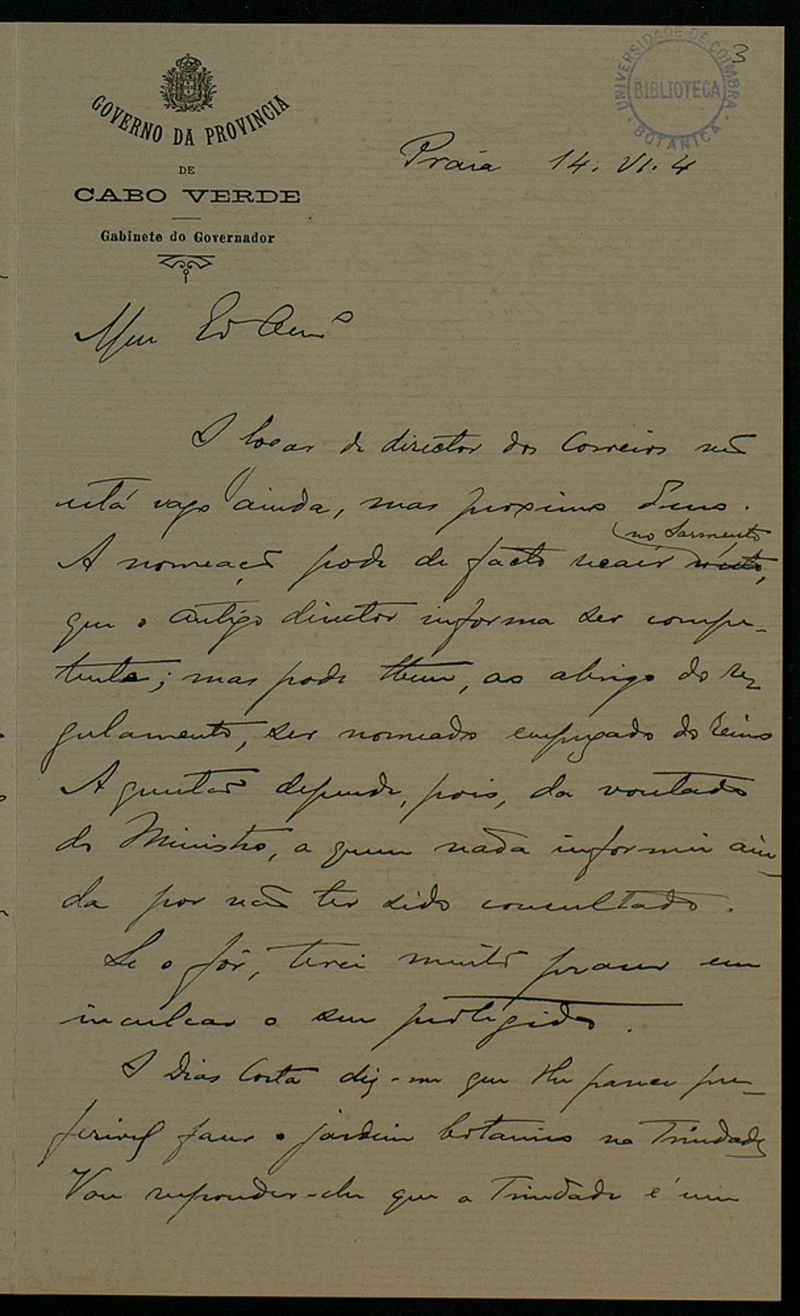 3
UNIVERSIDADE DE COIMBRA
BIBLIOTECA
BOTANICA
GOVERNO DA PROVINCIA
DE
CABO VERDE
Gabinete do Governador
Praia 14. VI. 4
Meu Ex Amº
O logar de director dos Correios não
está vago ainda, mas proximo d'isso.
no Sarmento
A nomeação pode de facto recair n'este,
que o antigo director informa ser compe-
tente; mas pode tbem, ao abrigo do re
gulamento, ser nomeado empregado do reino
A questão depende, pois, da vontade
do Ministro, a quem nada informei ain-
da por não ter sido consultado.
Se o fôr, terei muito prazer em
inculcar o seu protegido.
O Dias Costa diz-me que lhe parece pre-
ferivel fazer o jardim botanico na Trindade
Vou responder-lhe que a Trindade é um